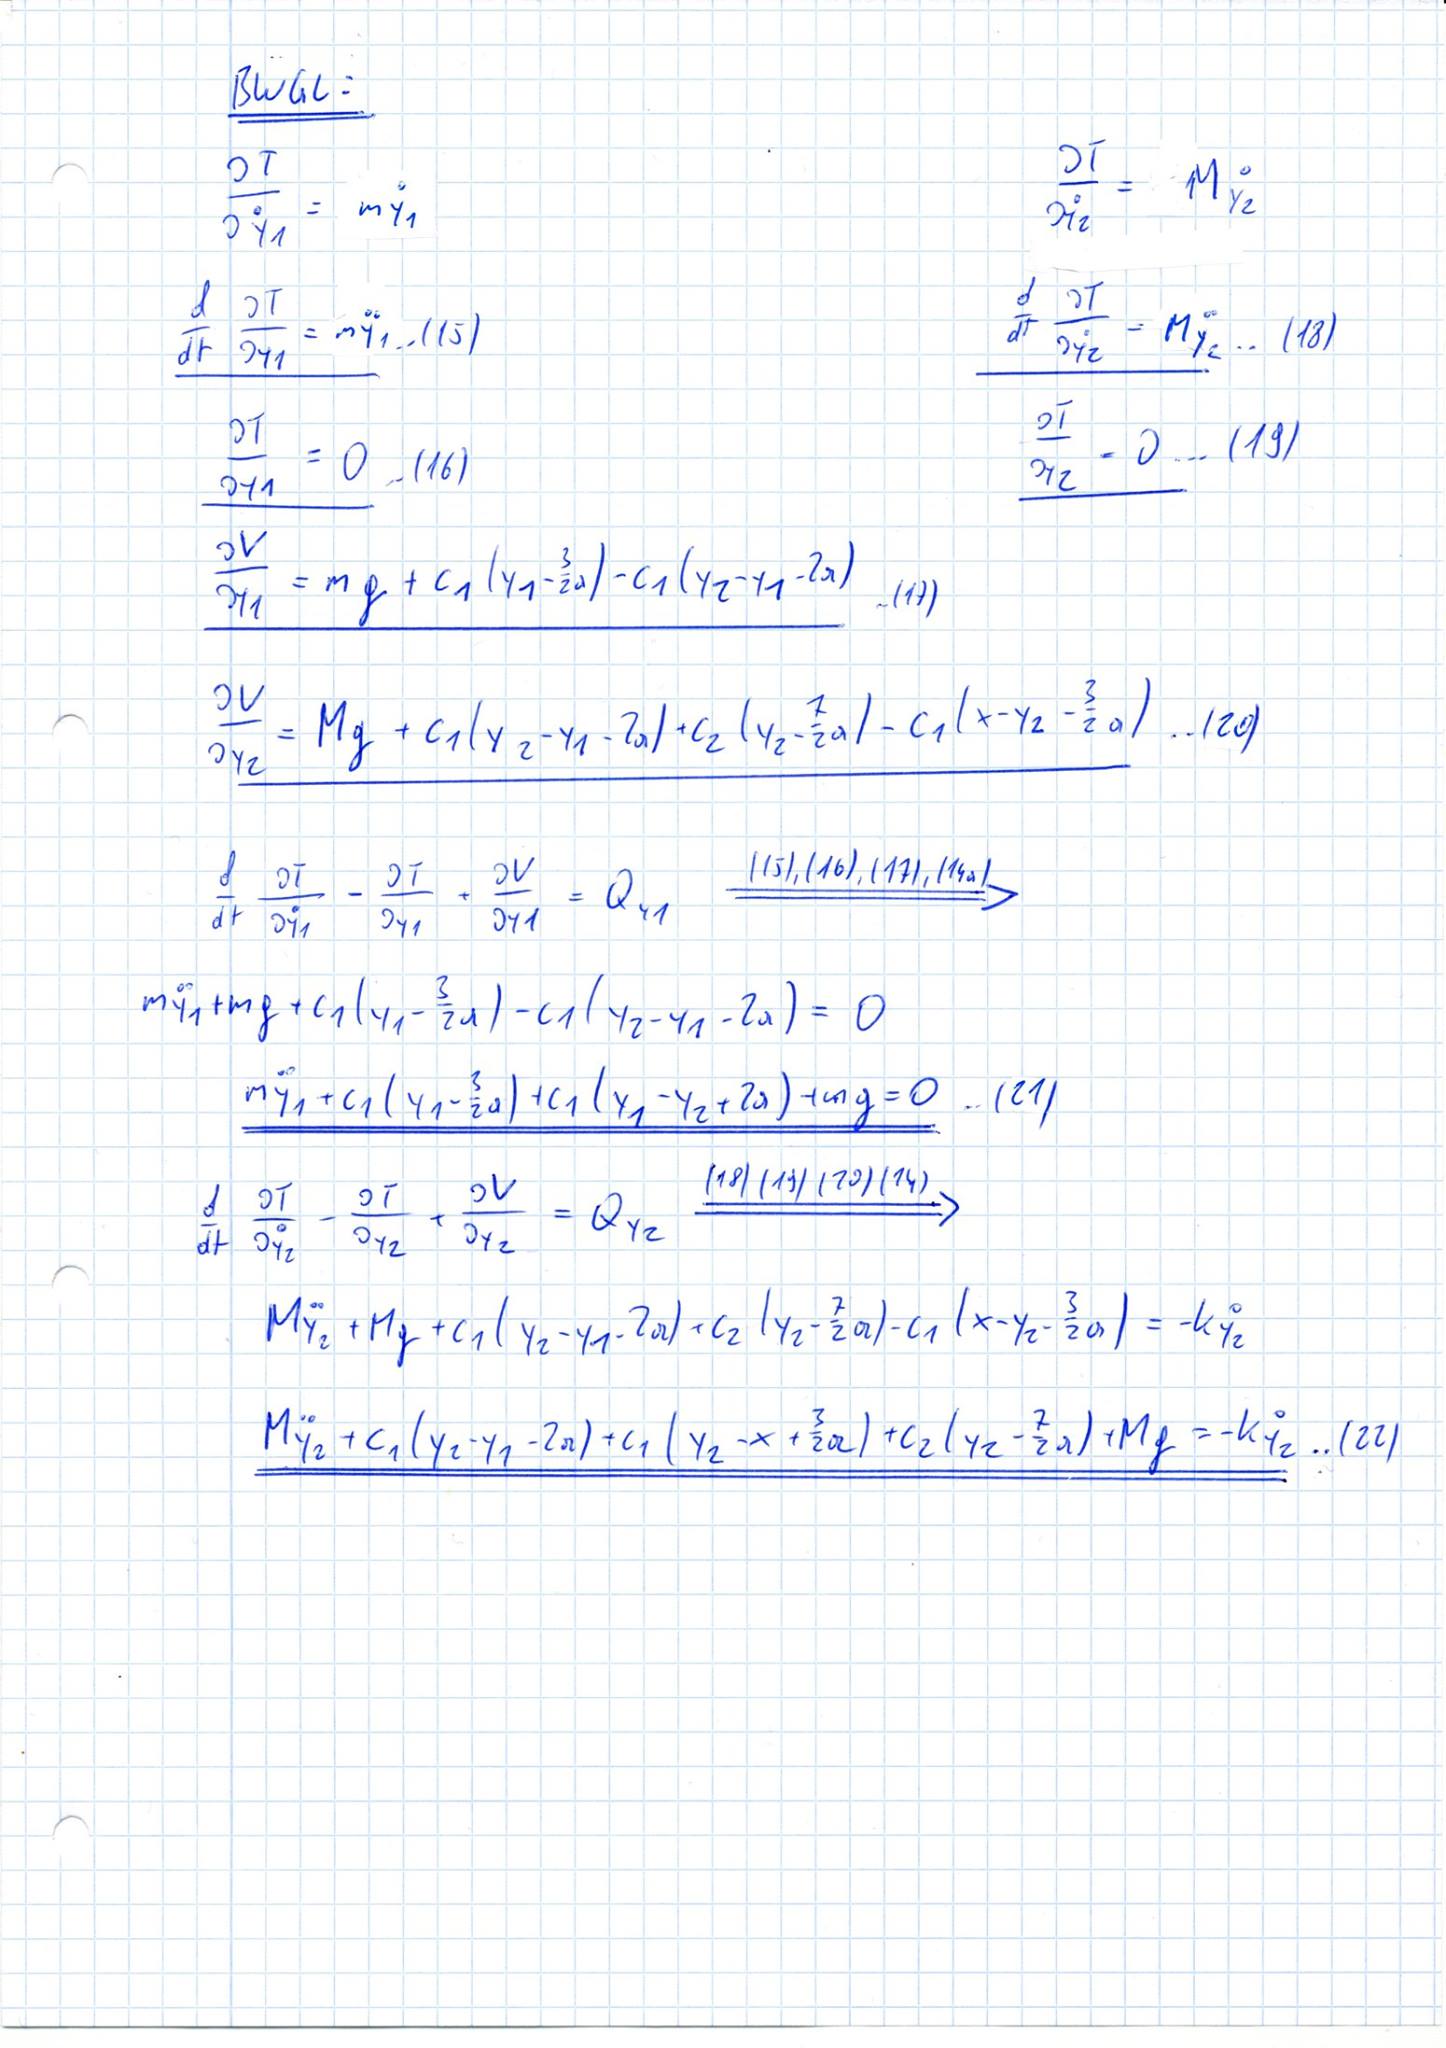 BWGL:
∂T/∂ẏ₁ = mẏ₁
∂T/∂ẏ₂ = Mẏ₂
d/dt ∂T/∂y₁ = mÿ₁ ..(15)
d/dt ∂T/∂ẏ₂ = Mÿ₂ .. (18)
∂T/∂y₁ = 0 ..(16)
∂T/∂y₂ = 0 ... (19)
∂V/∂y₁ = mg + c₁(y₁-3/2a) - c₁(y₂-y₁-2a) ..(17)
∂V/∂y₂ = Mg + c₁(y₂-y₁-2a) + c₂(y₂-7/2a) - c₁(x-y₂-3/2a) ...(20)
d/dt ∂T/∂ẏ₁ - ∂T/∂y₁ + ∂V/∂y₁ = Qy₁ (15),(16),(17),(14a) ⟹
mÿ₁+mg+c₁(y₁-3/2a)-c₁(y₂-y₁-2a) = 0
mÿ₁+c₁(y₁-3/2a)+c₁(y₁-y₂+2a)+mg=0 ..(21)
d/dt ∂T/∂ẏ₂ - ∂T/∂y₂ + ∂V/∂y₂ = Qy₂ (18)(19)(20)(14) ⟹
Mÿ₂+Mg+c₁(y₂-y₁-2a)+c₂(y₂-7/2a)-c₁(x-y₂-3/2a) = -kẏ₂
Mÿ₂+c₁(y₂-y₁-2a)+c₁(y₂-x+3/2a)+c₂(y₂-7/2a)+Mg=-kẏ₂ ..(22)